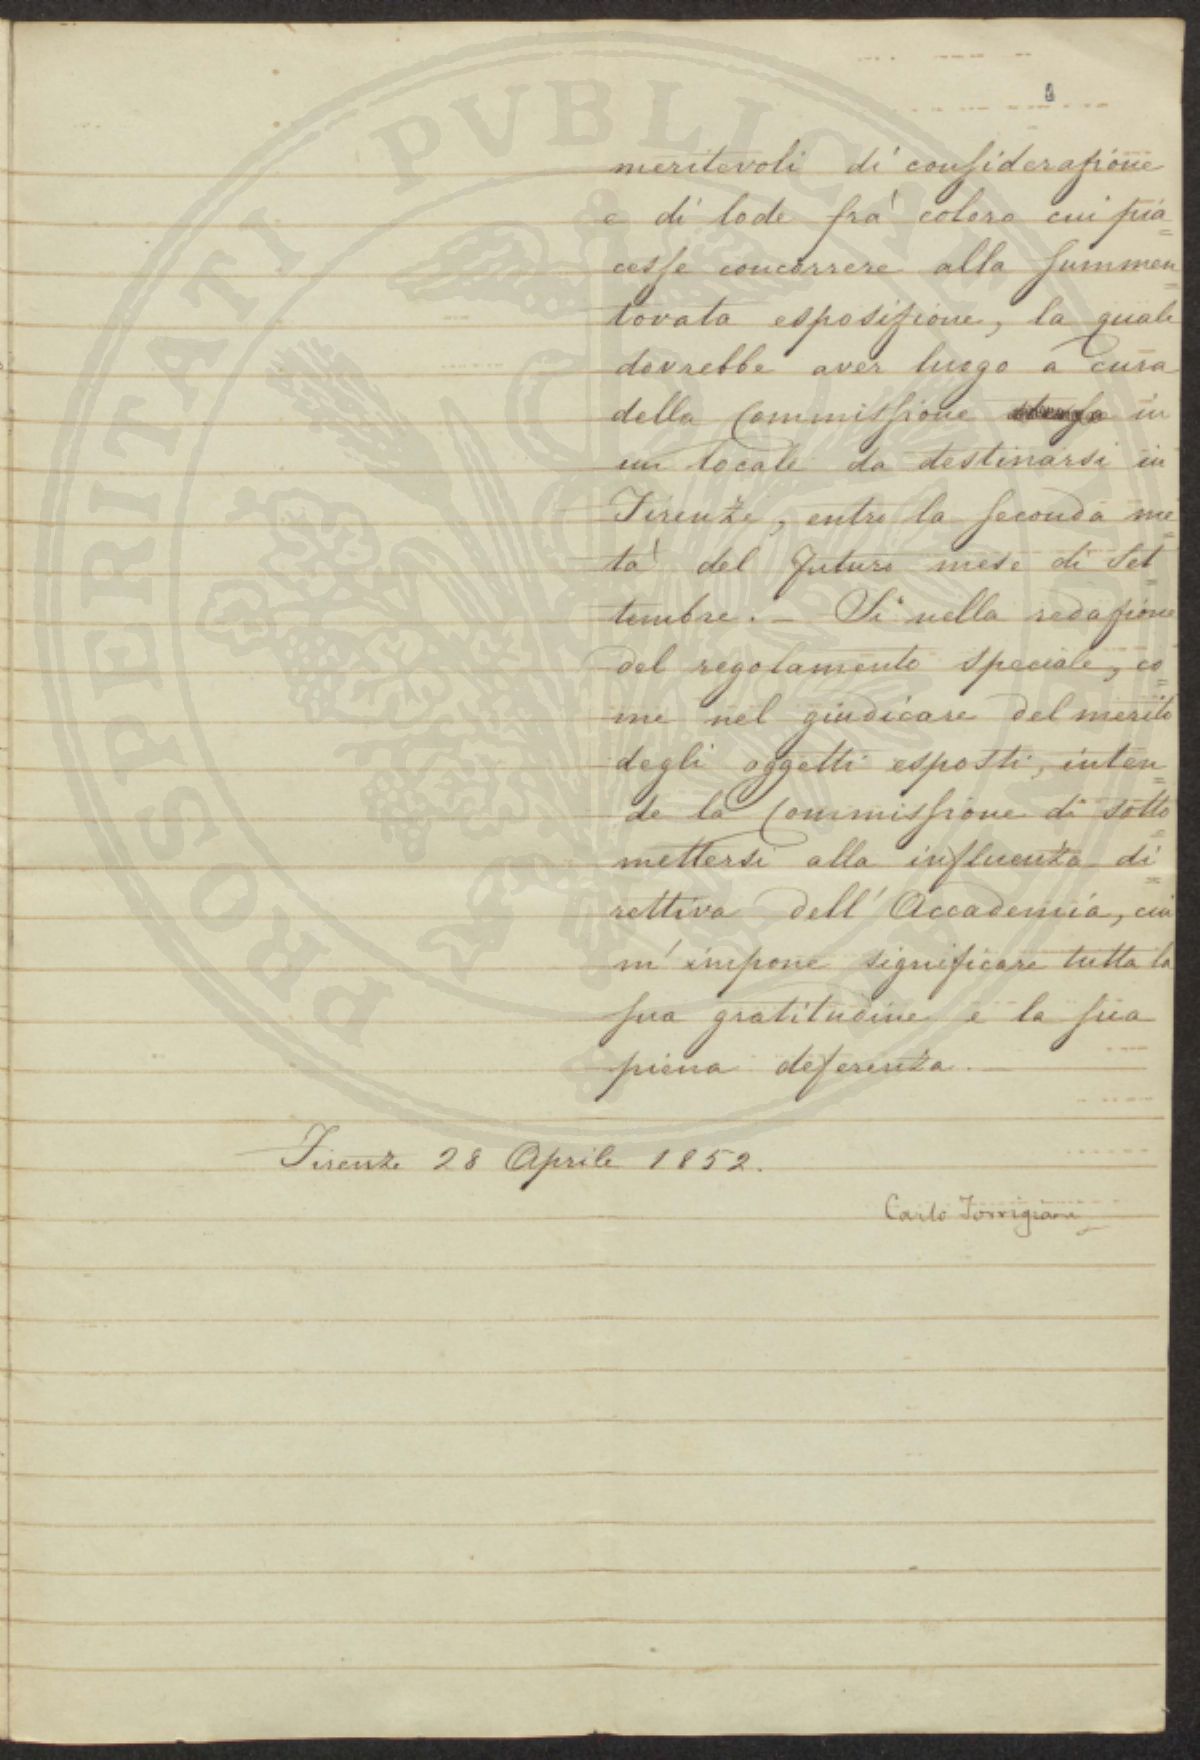 PROSPERITATI PVBLICAE
meritevoli di considerazione
e di lode frà coloro cui pia=
cesse concorrere alla summen=
tovata esposizione, la quale
dovrebbe aver luogo a cura
della Commissione in
un locale da destinarsi in
Firenze, entro la seconda me=
tà del futuro mese di Set=
tembre. – Sì nella redazione
del regolamento speciale, co=
me nel giudicare del merito
degli oggetti esposti, inten=
de la Commissione di sotto=
mettersi alla influenza di=
rettiva dell'Accademia, cui
m'impone significare tutta la
sua gratitudine e la sua
piena deferenza. –
Firenze 28 Aprile 1852.
Carlo Torrigiani